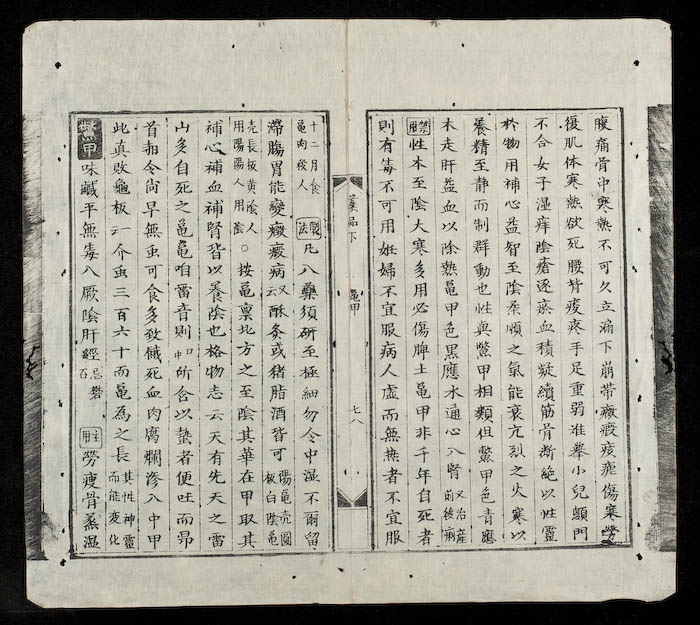 腹痛骨中寒熱不可久立漏下崩帶癥瘕痎瘧傷寒勞
復肌体寒熱欲死腰背痠疼手足重弱难舉小兒顖門
不合女子湿痒陰瘡逐瘀血積凝續筋骨断絶以性靈
於物用補心益智至陰柔順之氣能衰亢烈之火寒以
養精至静而制群動也性與鱉甲相類但鱉甲色青應
木走肝益血以除熱龜甲色黑應水通心入腎又治產前後痢
禁用性本至陰大寒多用必傷脾土龜甲非千年自死者
則有毒不可用妊婦不宜服病人虚而無熱者不宜服
藥品下 龜甲 七八
十二月食龜肉殺人 製法凡入藥須研至極細勿令中湿不爾留
滯腸胃能變癥瘕病又云酥灸或猪脂酒皆可陽龜壳圓板白陰龜
壳長板黄陰人用陽陽人用陰○按龜禀北方之至陰其華在甲取其
補心補血補腎皆以養陰也格物志云天有先天之雷
山多自死之龜龜咱雷音則口中所含以蟄者便吐而昂
首都令尚早無虫可食多致餓死血肉腐爛滲入中甲
此真敗龜板云介虫三百六十而龜為之長其性神靈而能変化
鱉甲味鹹平無毒入厥陰肝經忌礬石 主用勞瘦骨蒸温